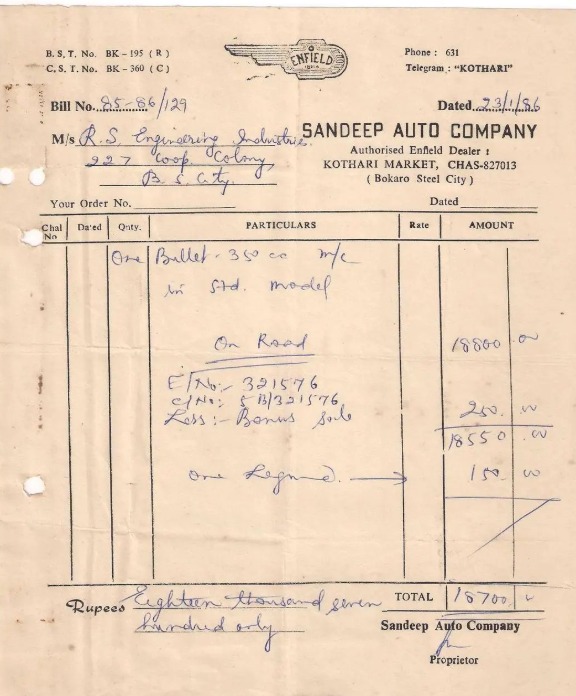 B. S. T. No. BK - 195 ( R )
C. S. T. No. BK - 360 ( C )
ENFIELD
INDIA
Phone : 631
Telegram : "KOTHARI"
Bill No. 85-86/129
Dated 23/1/86
M/s R. S. Engineering Industries.
227 Coop. Colony,
B. S. City.
SANDEEP AUTO COMPANY
Authorised Enfield Dealer :
KOTHARI MARKET, CHAS-827013
( Bokaro Steel City )
Your Order No.
Dated
Chal No Dated Qnty. PARTICULARS Rate AMOUNT
One Bullet - 350 cc m/c
in Std. model
On Road 18800 00
E/No:- 321576
C/No: 5 B/321576
Less :- Bonus sale 250. 00
18550 .00
one 150. 00
TOTAL 18700
Rupees Eighteen thousand seven
hundred only
Sandeep Auto Company
Proprietor